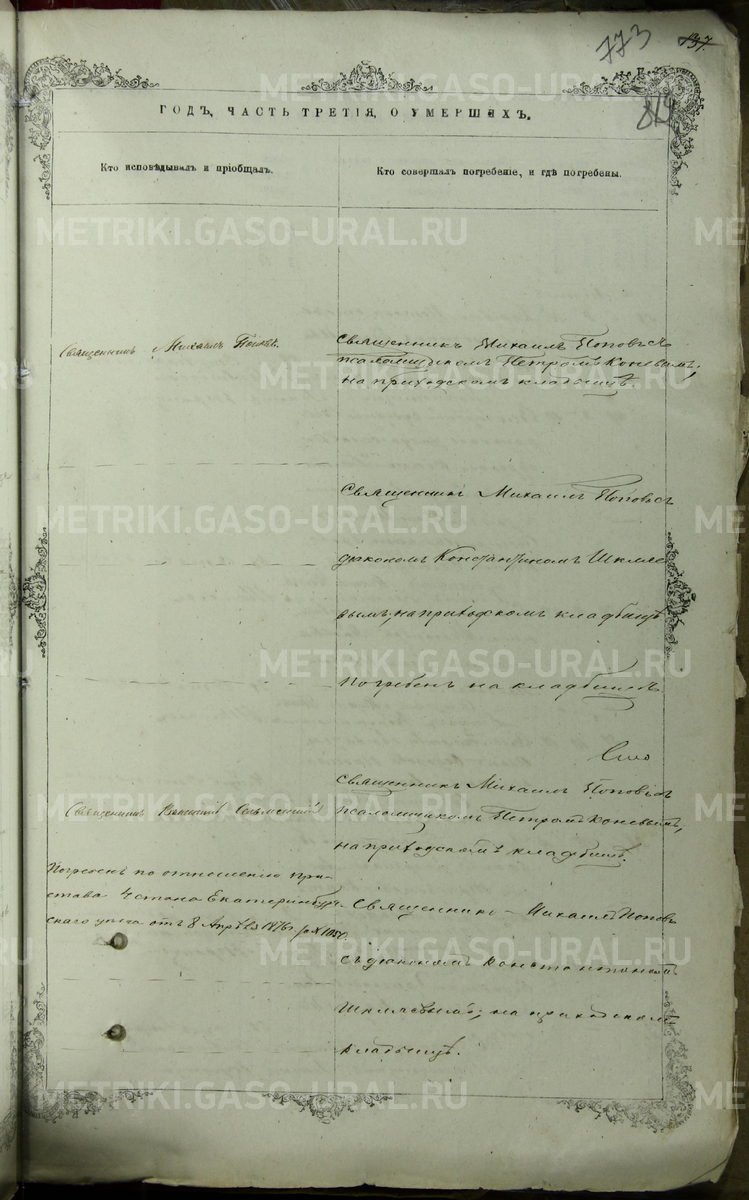 773
137.
819
ГОДЪ, ЧАСТЬ ТРЕТІЯ, О УМЕРШИХЪ.
Кто исповѣдывалъ и пріобщалъ.
Кто совершалъ погребеніе, и гдѣ погребены.
Священникъ Михаилъ Поповъ.
Священникъ Михаилъ Поповъ съ
псаломщикомъ Петромъ Коневымъ,
на приходскомъ кладбищѣ.
Священникъ Михаилъ Поповъ съ
діакономъ Константиномъ Шкляе
вымъ, на приходскомъ кладбищѣ
Погребенъ на кладбищѣ
Священникъ Михаилъ Поповъ съ
псаломщикомъ Петромъ Коневымъ,
на приходскомъ кладбищѣ.
Священникъ
Погребенъ по отношенію при-
става 4 стана Екатеринбург-
скаго уѣзда отъ 8 Апрѣля 1876 г. за №
Священникъ Михаилъ Поповъ
съ діакономъ Константиномъ
Шкляевымъ, на приходскомъ
кладбищѣ.
METRIKI.GASO-URAL.RU